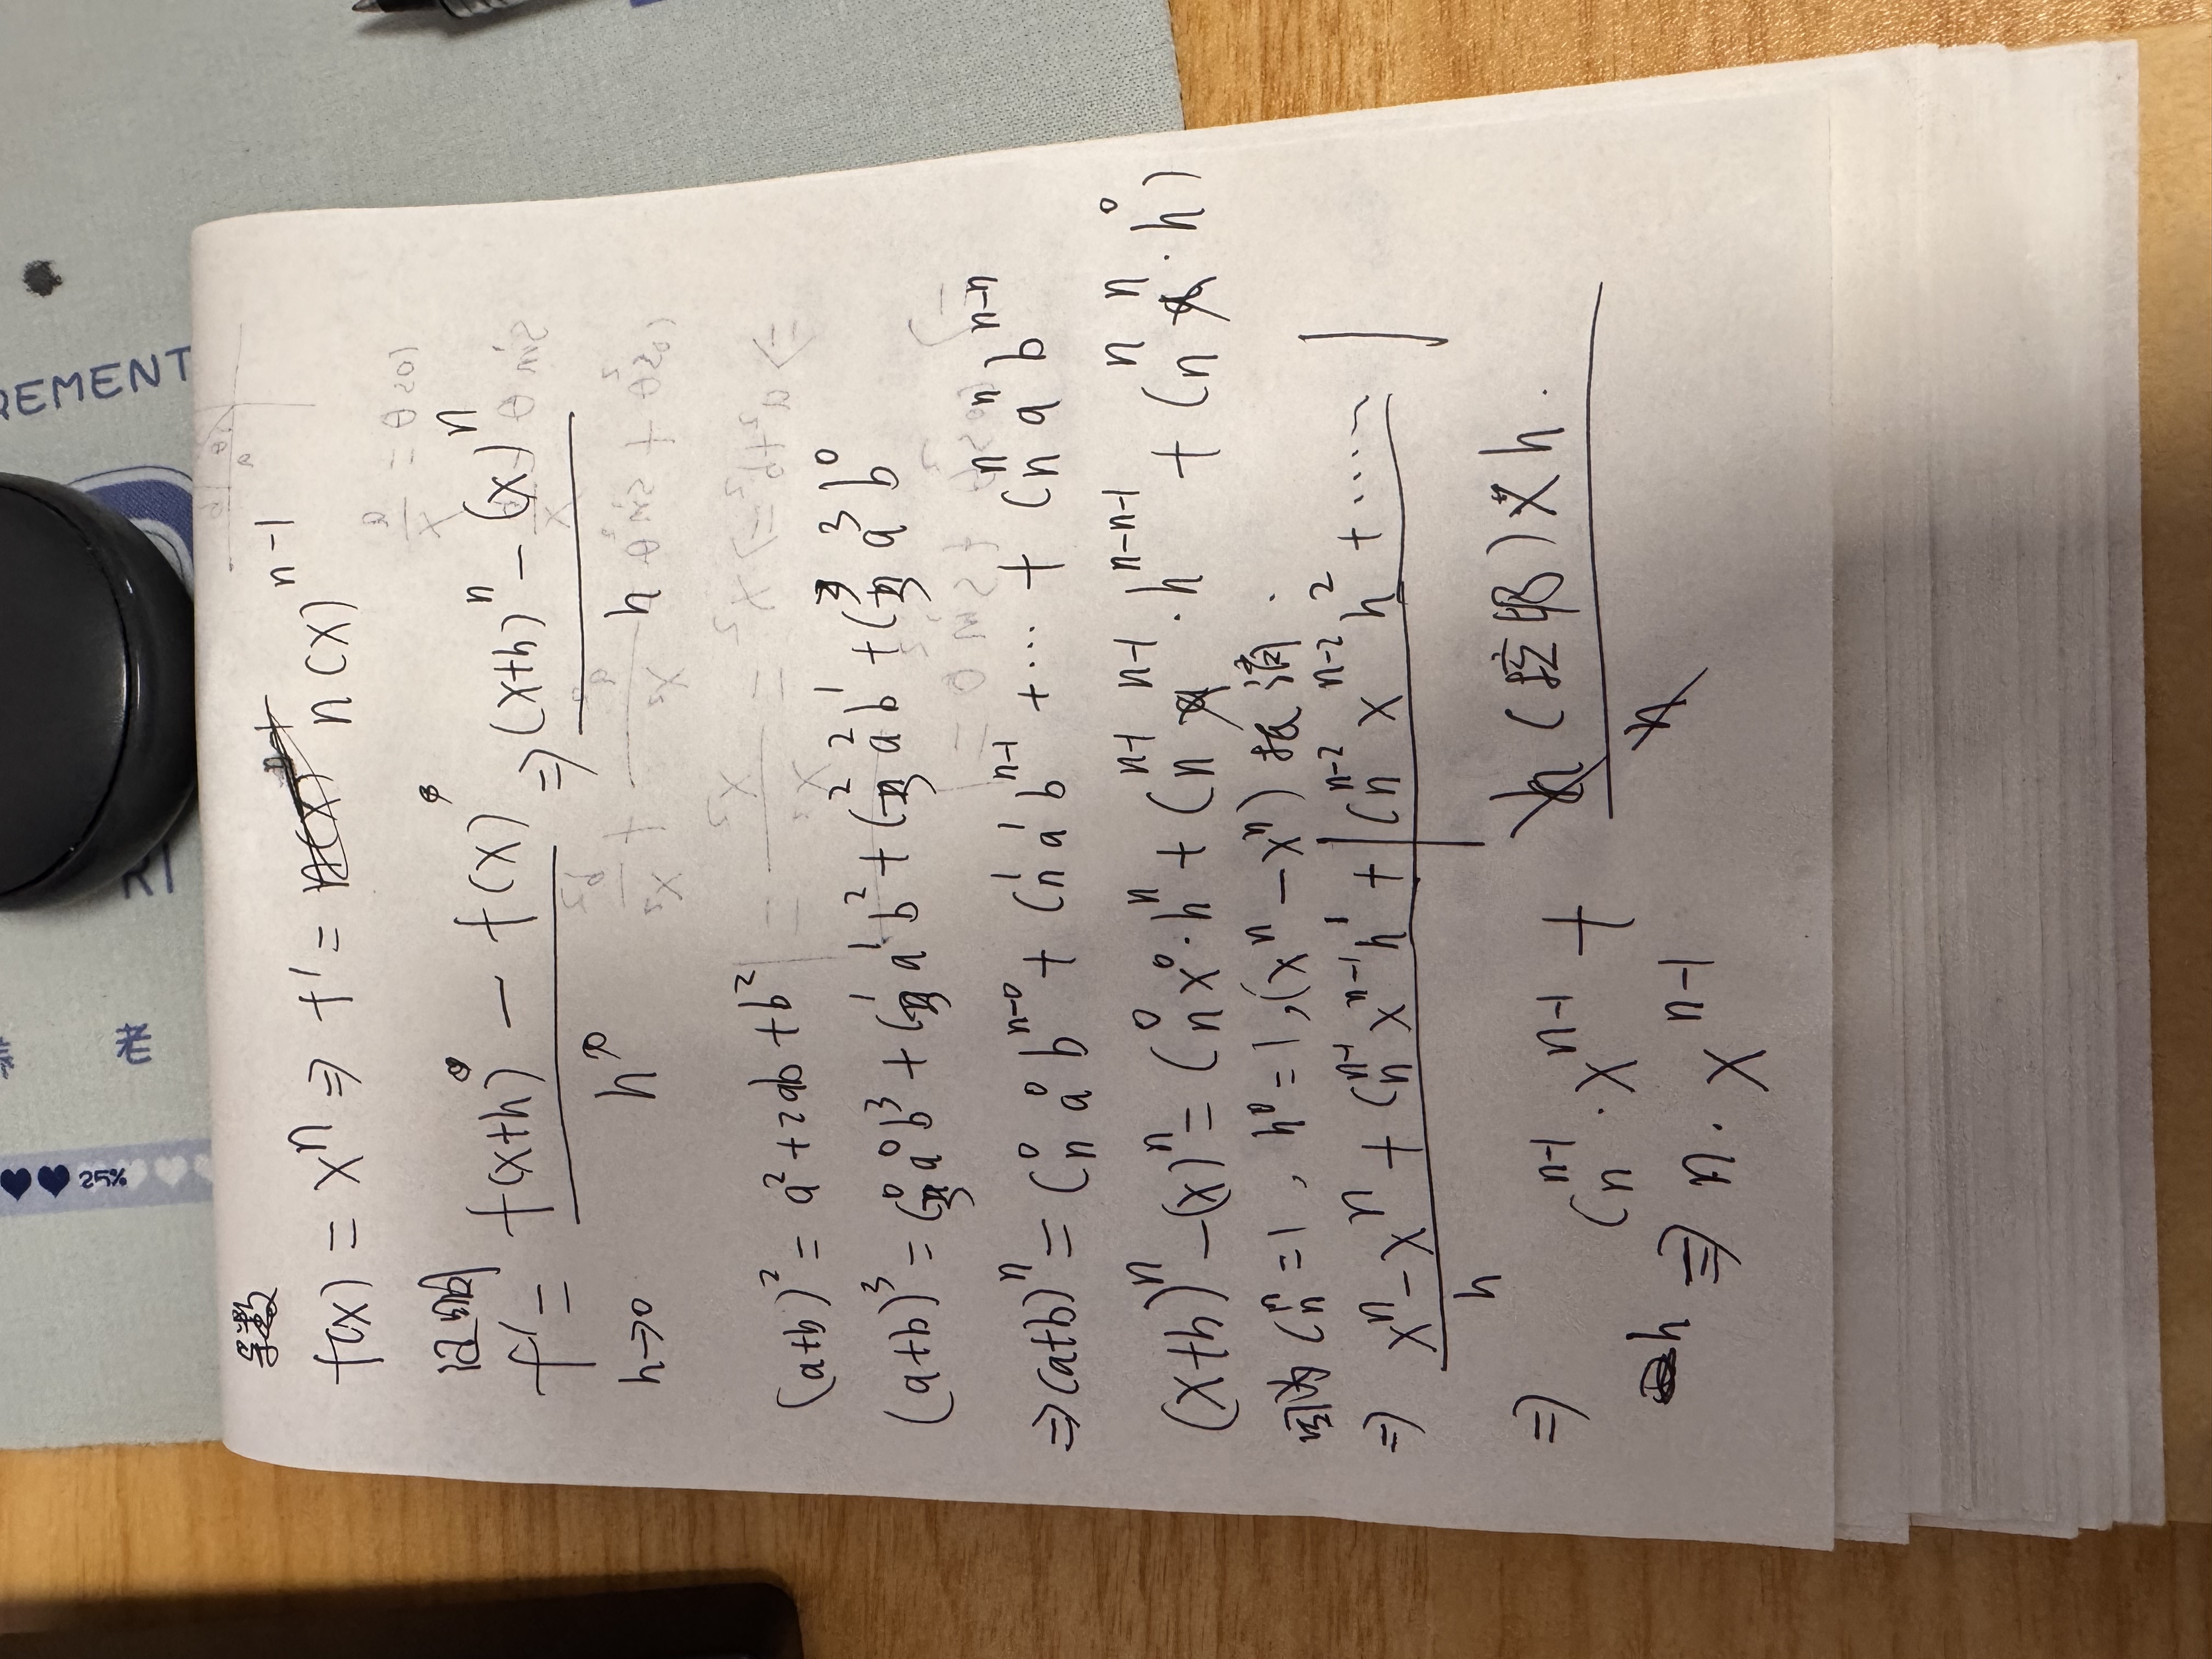 导数
f(x) = xⁿ ⇒ f' = n(x)ⁿ⁻¹
证明
f' = f(x+h) - f(x) / h ⇒ (x+h)ⁿ - (x)ⁿ / h
h→0
(a+b)² = a² + 2ab + b²
(a+b)³ = C₃⁰a⁰b³ + C₃¹a¹b² + C₃²a²b¹ + C₃³a³b⁰
⇒ (a+b)ⁿ = Cₙ⁰a⁰bⁿ⁻⁰ + Cₙ¹a¹bⁿ⁻¹ + ... + Cₙⁿaⁿbⁿ⁻ⁿ
(x+h)ⁿ - (x)ⁿ = (Cₙ⁰x⁰·hⁿ + Cₙⁿ⁻¹xⁿ⁻¹·hⁿ⁻ⁿ⁻¹ + Cₙⁿxⁿ·h⁰)
因为 Cₙⁿ = 1, h⁰ = 1, (xⁿ - xⁿ) 抵消.
⇒ xⁿ - xⁿ + Cₙⁿ⁻¹xⁿ⁻¹h¹ + Cₙⁿ⁻²xⁿ⁻²h² + ...... / h
⇒ Cₙⁿ⁻¹·xⁿ⁻¹ + h(
)×h. / h
h ⇒ n·xⁿ⁻¹
REMENT
25%